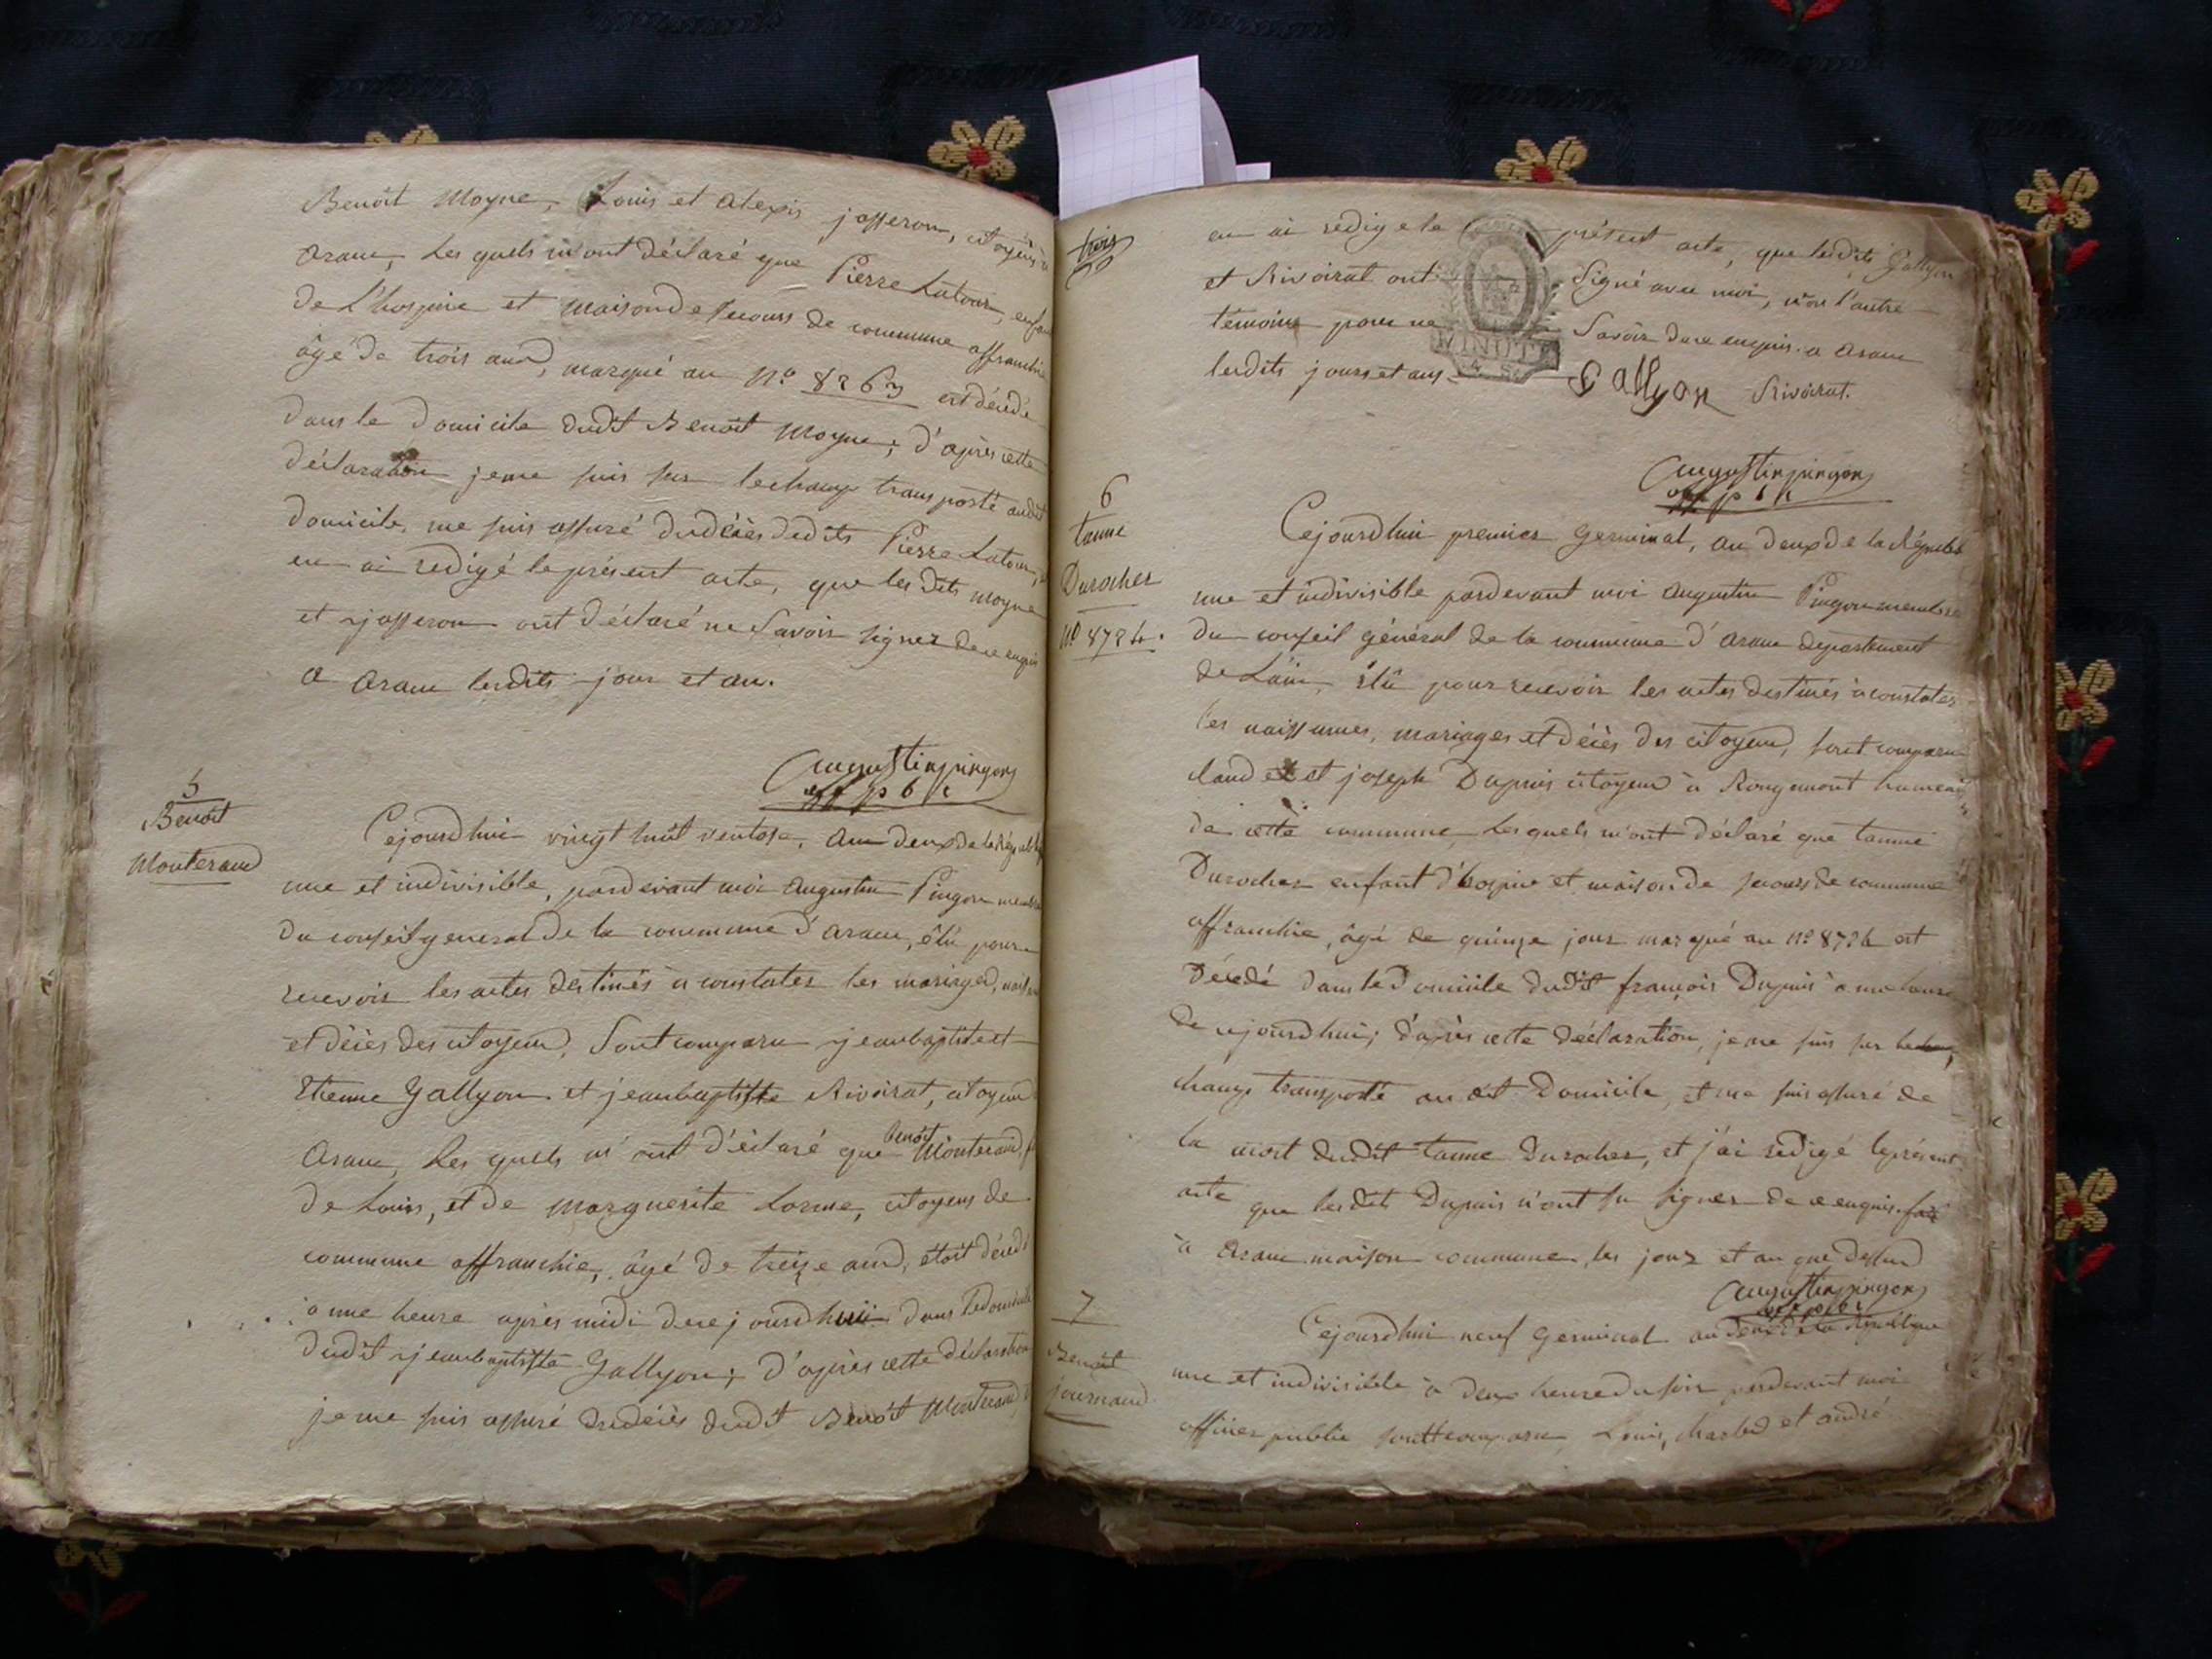 Benoit Moyne, Louis et Alexis josseron, citoyens à
Aranc, Les quels m'ont déclaré que Pierre Latour, enfan
de L'hospice et maison de secours de commune affranchie
âgé de trois ans, marqué au N.º 8263 est décédé
dans le domicile dudit Benoit Moyne; d'après cette
déclaration je me suis sur lechamp transporté audit
domicile, me suis assuré du décès dedits Pierre Latour,
en ai redigé le présent acte, que les dits moyne
et josseron ont déclaré ne Savoir signer de ce enquis
a aranc lesdits jour et an.
augustin pingon
5
Benoit
Monteraud
Cejourdhui vingt huit ventose, an deux de la Républ
une et indivisible, pardevant moi augustin Pingon membre
du conseil general de la commune d'aranc, élu pour
recevoir les actes destinés à constater les mariages, naiss
et décès des citoyens, Sont comparu jeanbaptiste et
Etienne Gallyon et jeanbaptiste Rivoirat, citoyens
aranc, Les quels m'ont déclaré que benoit Monteraud, f
de Louis, et de Marguerite Lorme, citoyens de
commune affranchie, âgé de treize ans, étoit décédé
a une heure après midi de ce jourdhui dans le domicile
dudit jeanbaptiste Gallyon; d'après cette déclaration
je me suis assuré du décès dudit Benoit Monteraud,
trois
en ai redigé le présent acte, que lesdits Gallyon
et Rivoirat ont Signé avec moi, non l'autre
témoins pour ne Savoir de ce enquis. a aranc
lesdits jours et ans
MINUTE
Gallyon Rivoirat.
augustin pingon
6
tanne
Durocher
Nº 8724.
Cejourdhui premier Germinal, an deux de la Républ
une et indivisible pardevant moi augustin Pingon membre
du conseil général de la commune d'aranc departement
de L'ain, élu pour recevoir les actes destinés à constater
les naissances, mariages et décès des citoyens, sont comparu
claude et joseph Dupuis citoyens à Rougemont hameau
de cette commune, Lesquels m'ont déclaré que tanne
Durocher enfant d'hospice et maison de secours de commune
affranchie, âgé de quinze jours marqué au nº 8724 est
décédé dans le Domicile dudit françois Dupuis à une heure
de cejourdhui; d'après cette déclaration, je me suis sur le
champ transporté au dit Domicile, et me suis assuré de
la mort dudit tanne Durocher, et j'ai redigé le présent
acte que lesdits Dupuis n'ont su signer de ce enquis fait
à aranc maison commune, les jour et an que dessus
augustin pingon
7
Benoit
journaud
Cejourdhui neuf Germinal an deux de la République
une et indivisible à deux heure du soir pardevant moi
officier public sont comparu Louis, Charles et andré